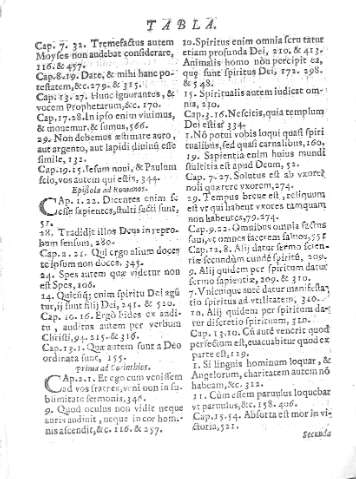 TABLA.
Cap. 7. 32. Tremefactus autem
Moyses non audebat considerare,
116. & 457.
Cap. 8. 19. Date, & mihi hanc po-
testatem, &c. 279. & 315.
Cap. 13. 27. Hunc ignorantes, &
vocem Prophetarum, &c. 170.
Cap. 17. 28. In ipso enim viuimus,
& mouemur, & sumus, 566.
29. Non debemus æstimare auro,
aut argento, aut lapidi diuinũ esse
simile, 132.
Cap. 19. 15. Iesum noui, & Paulum
scio, vos autem qui estis, 344.
Epistola ad Romanos.
CAp. 1. 22. Dicentes enim se
esse sapientes, stulti facti sunt,
51.
28. Tradidit illos Deus in repro-
bum sensum, 280.
Cap. 2. 21. Qui ergo alium doces
te ipsum non doces, 345.
24. Spes autem quæ videtur non
est Spes, 108.
14. Quicũq; enim spiritu Dei agũ
tur, ij sunt filij Dei, 241. & 520.
Cap. 10. 16. Ergo fides ex audi-
tu, auditus autem per verbum
Christi, 94. 215. & 316.
Cap. 13. 1. Quæ autem sunt à Deo
ordinata sunt, 155.
prima ad Corinthios.
CAp. 2. 1. Et ego cum venissem
ad vos fratres, veni non in su-
blimitate sermonis, 346.
9. Quod oculus non vidit neque
auris audiuit, neque in cor homi-
nis ascendit, &c. 116. & 257.
10. Spiritus enim omnia scrutatur
etiam profunda Dei, 210. & 413.
Animalis homo nõ percipit ea,
quę sunt spiritus Dei, 172. 298.
& 548.
15. Spiritualis autem iudicat om-
nia, 230.
Cap. 3. 16. Nescitis, quia templum
Dei estis? 334.
1. Nõ potui vobis loqui quasi spiri
tualibus, sed quasi carnalibus, 160.
19. Sapientia enim huius mundi
stultitia est apud Deum, 52.
Cap. 7. 27. Solutus est ab vxore,
noli quærere vxorem, 274.
29. Tempus breue est, reliquum
est vt qui habent vxores tamquam
non habentes, 70. 274.
Cap. 9. 22. Omnibus omnia factus
sum, vt omnes facerem saluos, 351
Cap. 12. 8. Alij datur sermo scien-
tiæ secundùm eundẽ spiritũ, 209.
9. Alij quidem per spiritum datur
sermo sapientiæ, 209. & 310.
7. Vnicuique autẽ datur manifesta-
tio spiritus ad vtilitatem, 310.
10. Alij quidem per spiritum da-
tur discretio spirituum, 510.
Cap. 13. 10. Cũ autẽ venerit quod
perfectum est, euacuabitur quod ex
parte est, 129.
1. Si linguis hominum loquar, &
Angelorum, charitatem autem nõ
habeam, &c. 312.
11. Cùm essem paruulus loquebar
vt paruulus, &c. 158. 406.
Cap. 15. 54. Absorta est mor in vi-
ctoria, 521.
Secunda